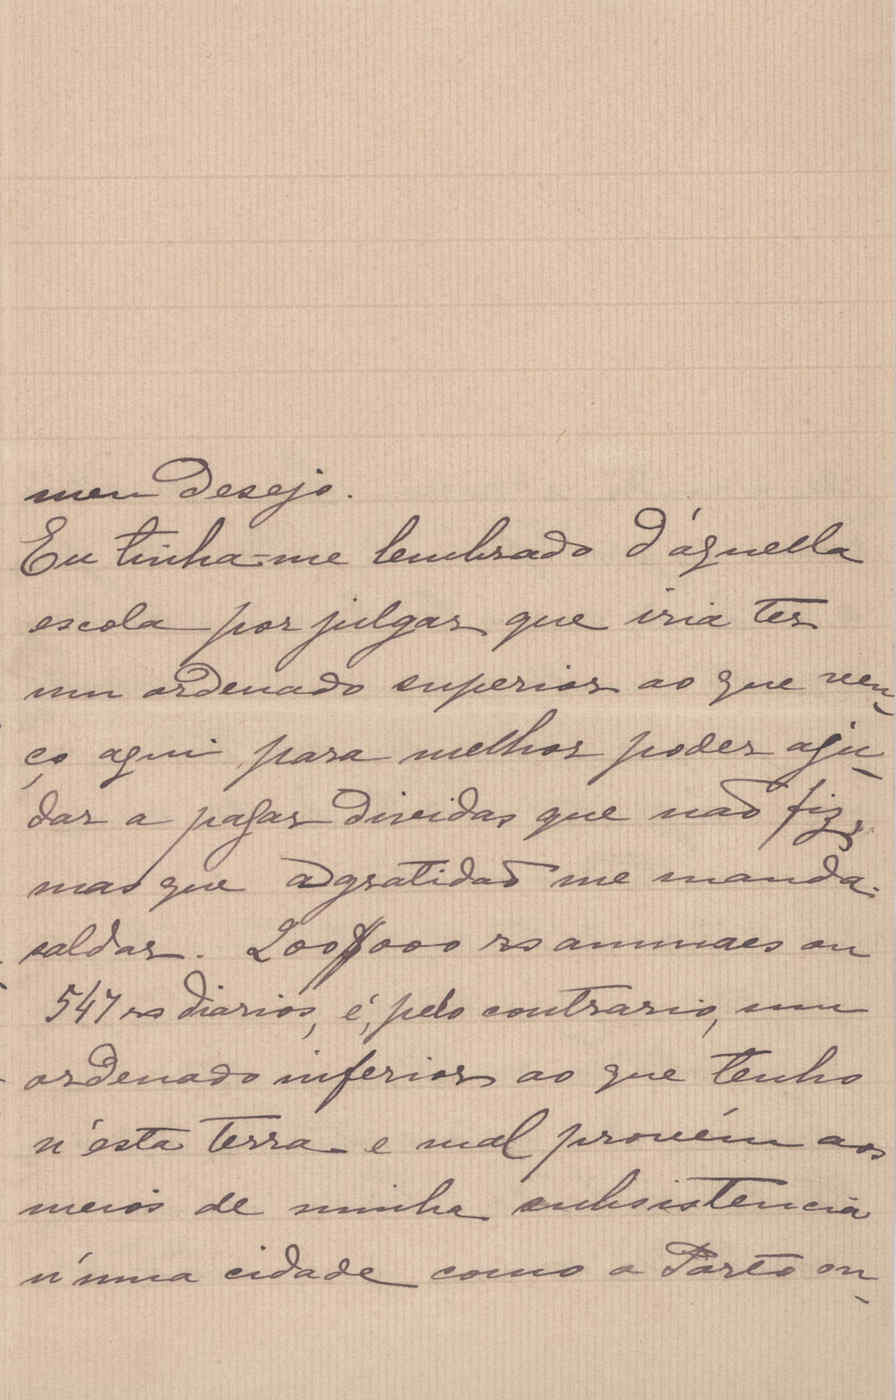 meu desejo.
Eu tinha-me lembrado d'áquella
escola por julgar que iria ter
um ordenado superior ao que ven-
ço aqui para melhor poder aju-
dar a pagar dividas que não fiz,
mas que a gratidão me manda
saldar. 200$000 rs annuaes ou
547 rs diarios, é, pelo contrario, um
ordenado inferior ao que tenho
n'esta terra e mal provém aos
meios de minha subsistencia
n'uma cidade como o Porto on-